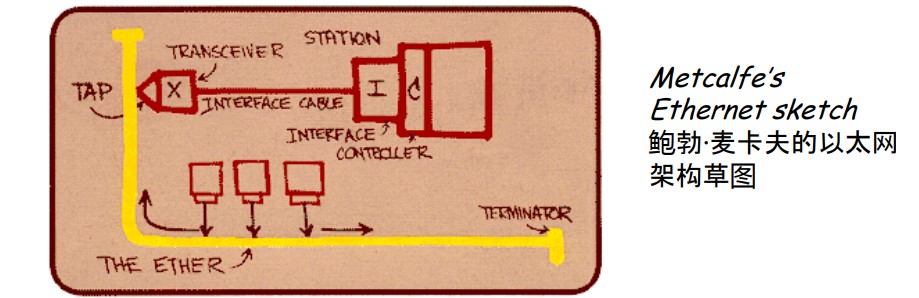 STATION
TRANSCEIVER
TAP
X
I
C
INTERFACE CABLE
INTERFACE
CONTROLLER
TERMINATOR
THE ETHER
Metcalfe's
Ethernet sketch
鲍勃·麦卡夫的以太网
架构草图